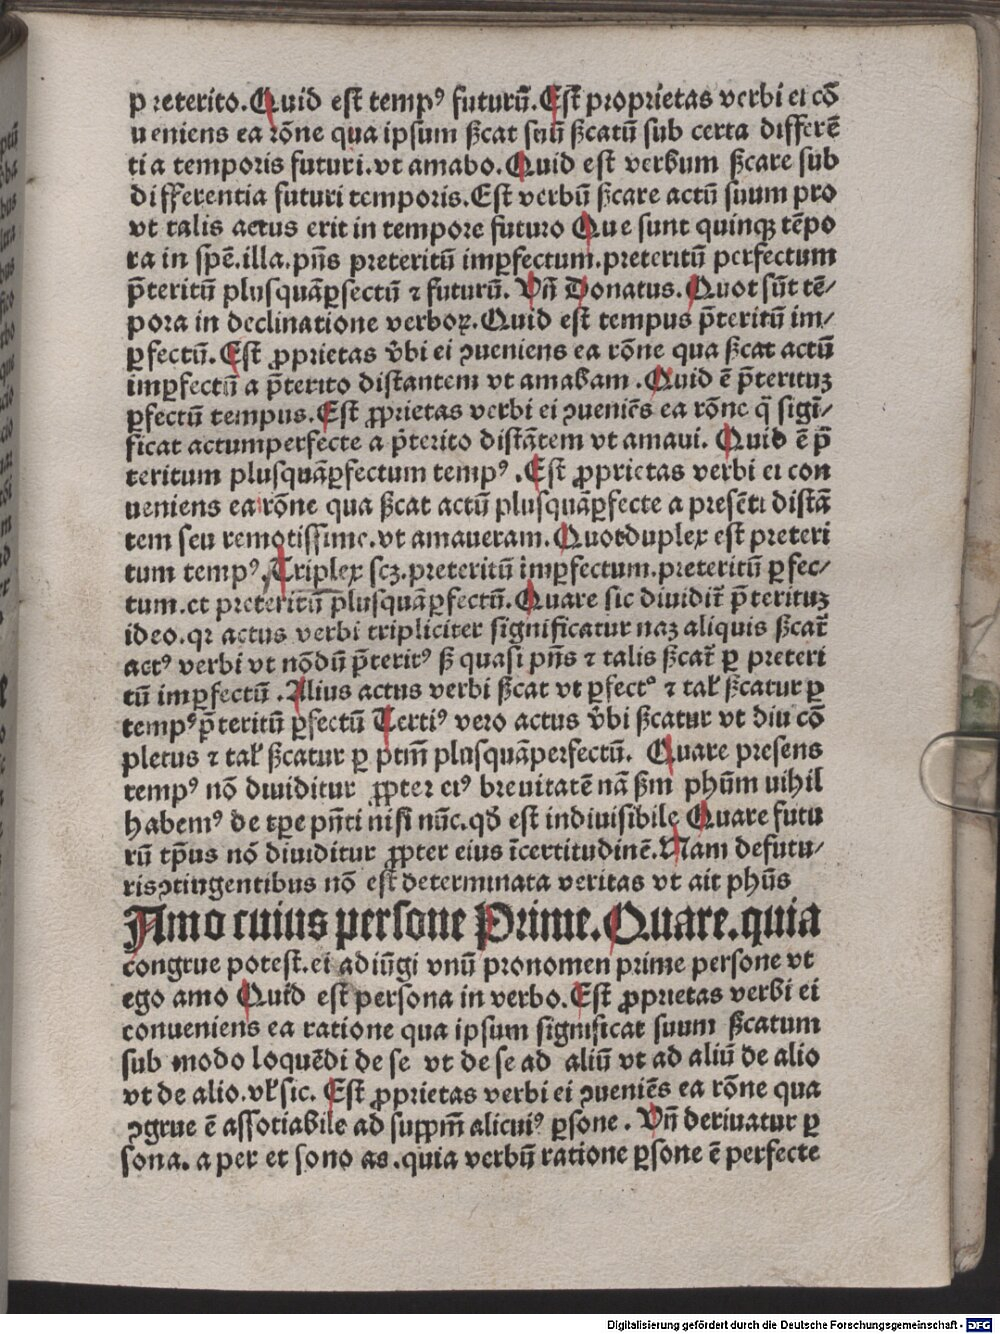 preterito. Quid est tempꝰ futurū. Est proprietas verbi ei cō
ueniens ea rōne qua ipsum ßcat suū ßcatū sub certa differē
tia temporis futuri. vt amabo. Quid est verbum ßcare sub
differentia futuri temporis. Est verbū ßcare actū suum pro
vt talis actus erit in tempore futuro Que sunt quinqꝫ tēpo
ra in spē. illa. pn̄s preteritū imꝑfectum. preteritū perfectum
p̄teritū plusquāꝑfectū ⁊ futurū. Vn̄ Donatus. Quot sūt tē⸗
pora in declinatione verboꝝ. Quid est tempus p̄teritū im⸗
ꝑfectū. Est ꝓprietas v̄bi ei ꝯueniens ea rōne qua ßcat actū
imꝑfectū a p̄terito distantem vt amabam. Quid ē p̄terituꝫ
ꝑfectū tempus. Est ꝓprietas verbi ei ꝯueniēs ea rōne q̄ signi⸗
ficat actumperfecte a p̄terito distātem vt amaui. Quid ē p̄
teritum plusquāꝑfectum tempꝰ. Est ꝓprietas verbi ei con
ueniens ea rōne qua ßcat actū plusquāꝑfecte a presēti distā
tem seu remotissime. vt amaueram. Quotduplex est preteri
tum tempꝰ, Triplex scꝫ. preteritū imꝑfectum. preteritū ꝑfec⸗
tum. et preteritū plusquāꝑfectū. Quare sic diuidit̄ p̄terituꝫ
ideo. qꝛ actus verbi tripliciter significatur naꝫ aliquis ßcat̄
actꝰ verbi vt nōdū p̄teritꝰ ß quasi pn̄s ⁊ talis ßcat̄ ꝑ preteri
tū imꝑfectū. Alius actus verbi ßcat vt ꝑfectꝰ ⁊ tał ßcatur ꝑ
tempꝰ p̄teritū ꝑfectū Tertiꝰ vero actus v̄bi ßcatur vt diu cō
pletus ⁊ tał ßcatur ꝑ ptm̄ plusquāperfectū. Quare presens
tempꝰ nō diuiditur ꝓpter eiꝰ breuitatē nā ßm phūm nihil
habemꝰ de tꝑe pn̄ti nisi nūc. qð est indiuisibile Quare futu
rū tp̄us nō diuiditur ꝓpter eius īcertitudinē. Nam defutu⸗
risꝯtingentibus nō est determinata veritas vt ait phūs
Amo cuius persone Prime. Quare. quia
congrue potest. ei adiūgi vnū pronomen prime persone vt
ego amo Quid est persona in verbo. Est ꝓprietas verbi ei
conueniens ea ratione qua ipsum significat suum ßcatum
sub modo loquēdi de se vt de se ad aliū vt ad aliū de alio
vt de alio. vł sic. Est ꝓprietas verbi ei ꝯueniēs ea rōne qua
ꝯgrue ē assotiabile ad suppm̄ alicuiꝰ ꝑsone. Vn̄ deriuatur ꝑ
sona. a per et sono as. quia verbū ratione ꝑsone ē perfecte
Digitalisierung gefördert durch die Deutsche Forschungsgemeinschaft - DFG